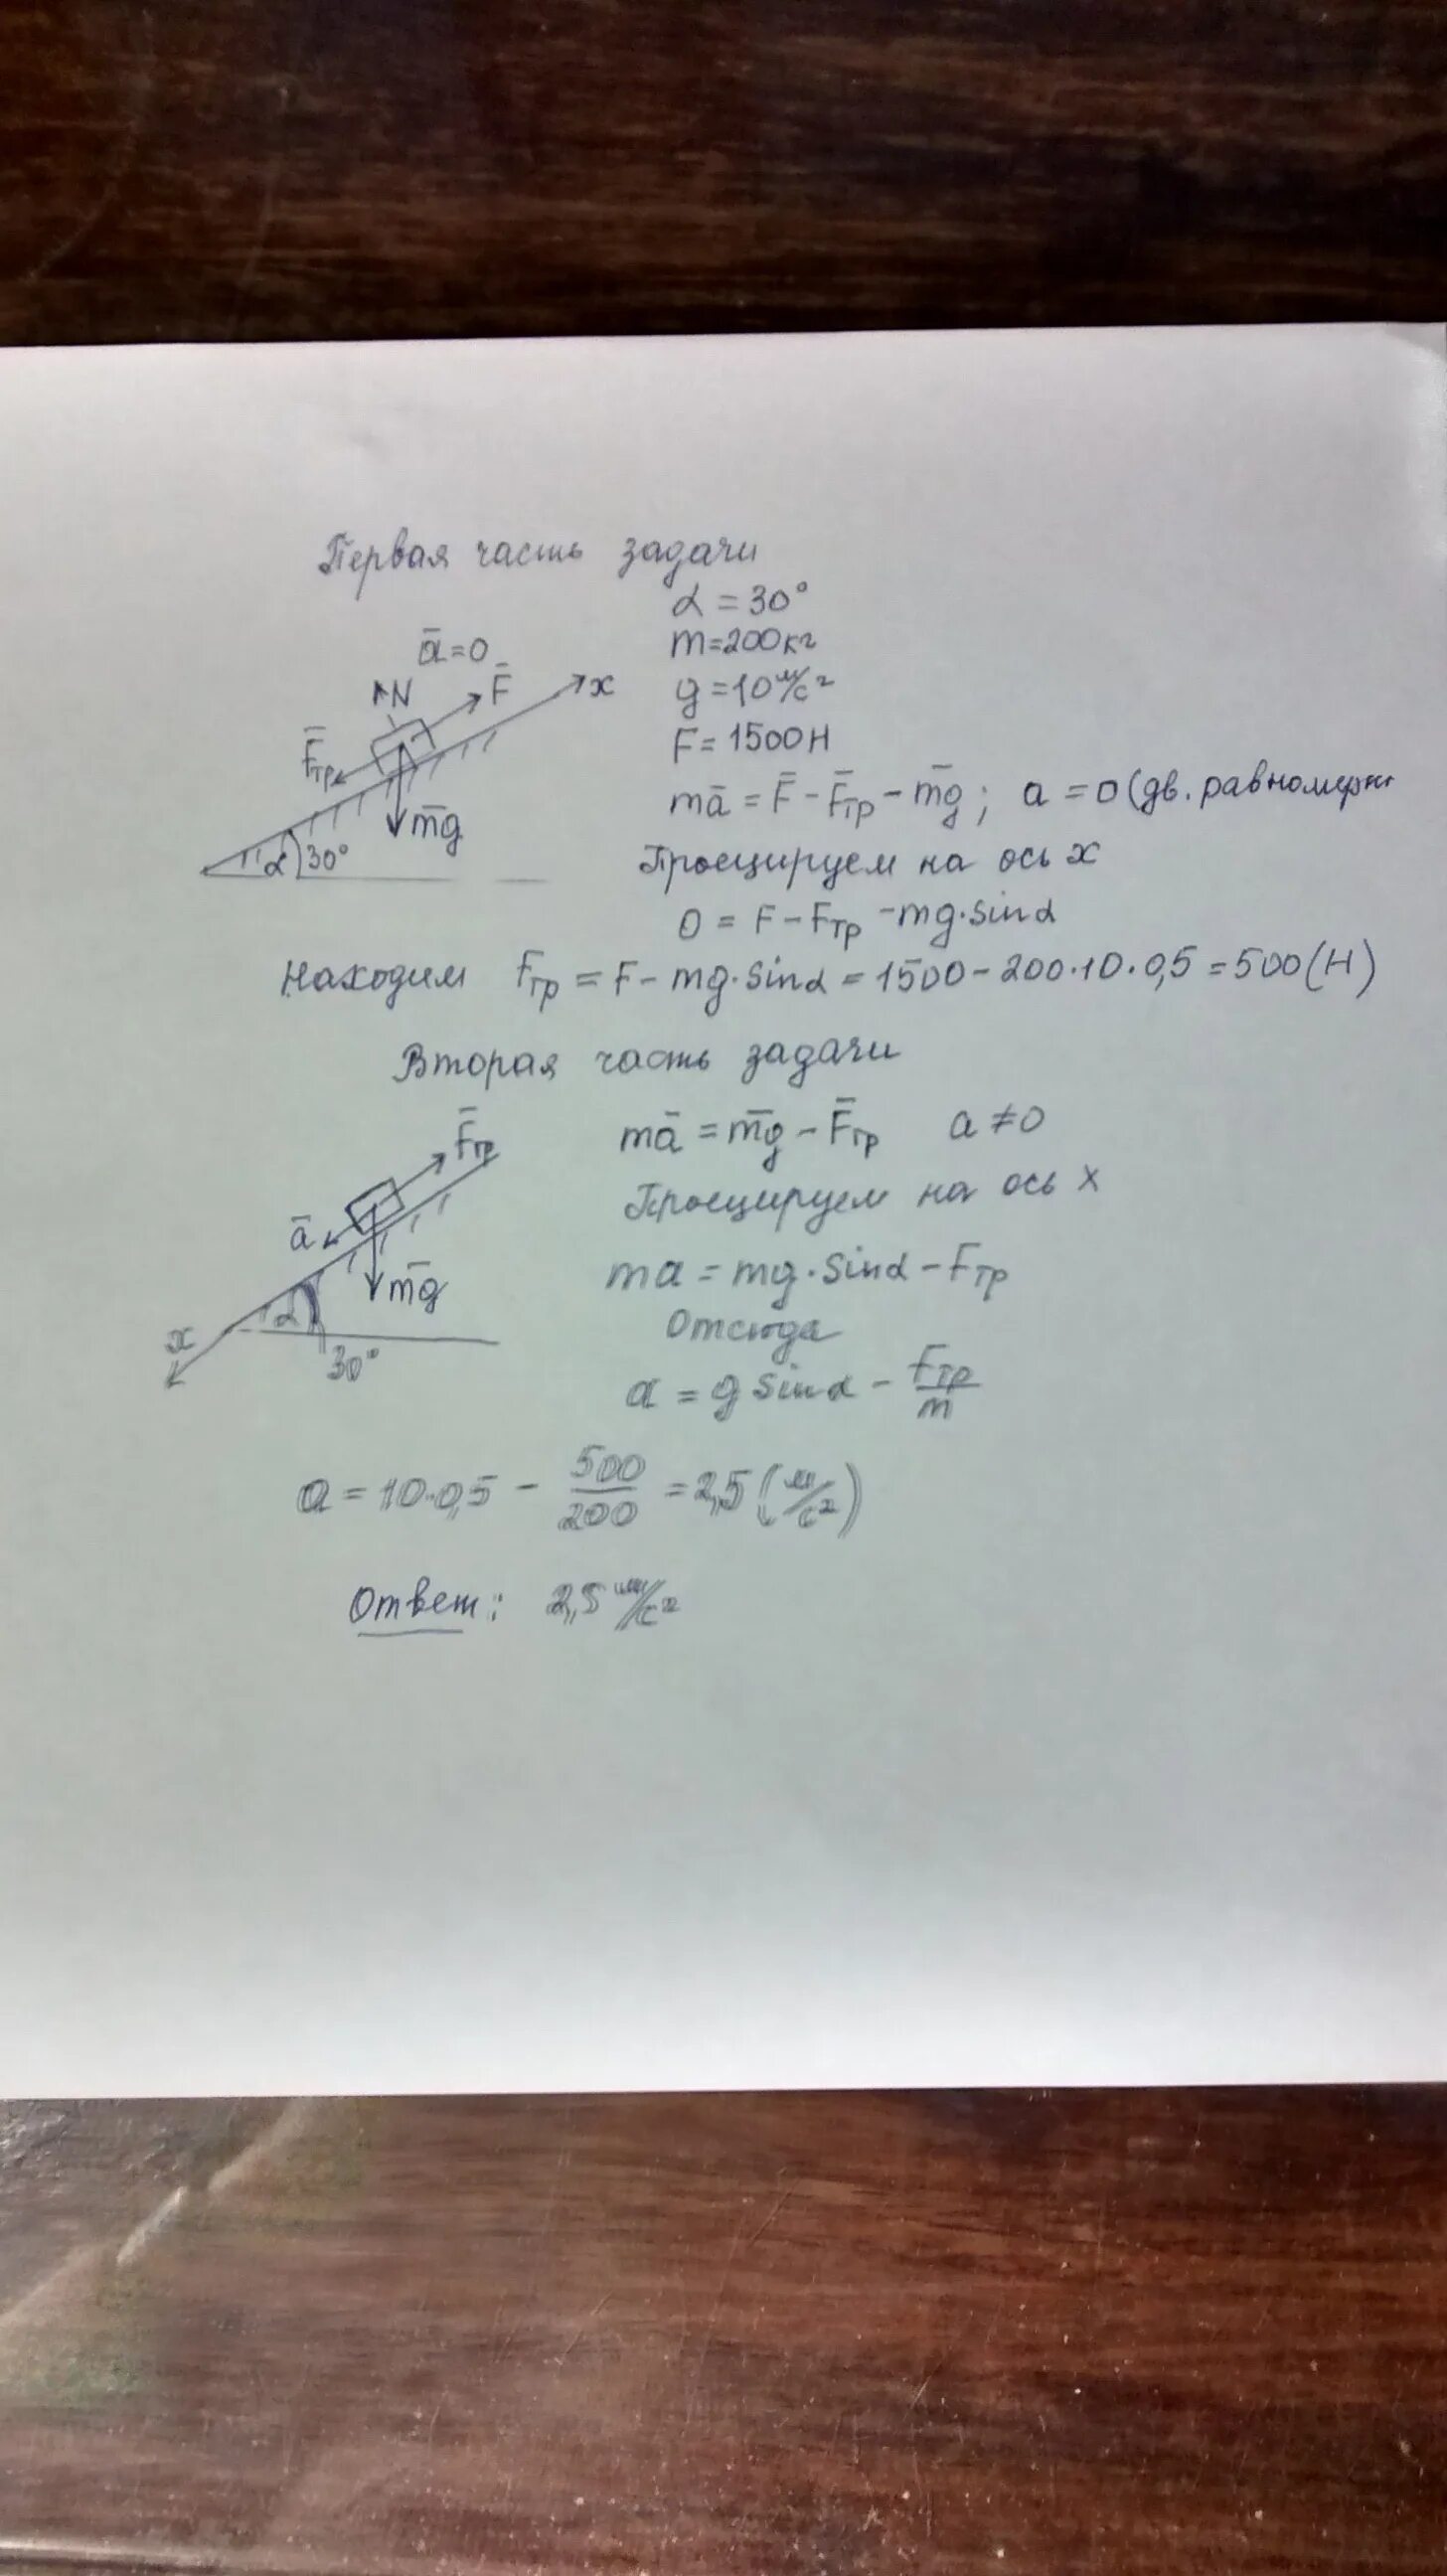 Первая часть задачи
α = 30°
m = 200 кг
g = 10 м/с²
F = 1500 Н
a̅ = 0
N
F̅
x
F̅тр
m̅g
α 30°
ma̅ = F̅ - F̅тр - m̅g; a = 0 (дв. равномерн
Проецируем на ось x
0 = F - Fтр - mg·sinα
Находим Fтр = F - mg·sinα = 1500 - 200·10·0,5 = 500 (Н)
Вторая часть задачи
F̅тр
a̅
m̅g
α
x
30°
ma̅ = m̅g - F̅тр a ≠ 0
Проецируем на ось x
ma = mg·sinα - Fтр
Отсюда
a = g sinα - Fтр/m
a = 10·0,5 - 500/200 = 2,5 (м/с²)
Ответ: 2,5 м/с²